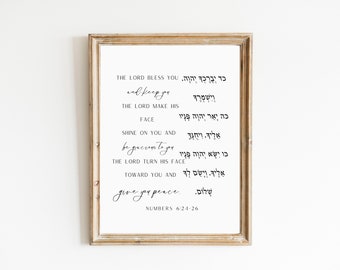 THE LORD BLESS YOU
and keep you
THE LORD MAKE HIS
FACE
SHINE ON YOU AND
be gracious to you
THE LORD TURN HIS FACE
TOWARD YOU AND
give you peace.
כד יְבָרֶכְךָ יְהוָה,
וְיִשְׁמְרֶךָ
כה יָאֵר יְהוָה פָּנָיו
אֵלֶיךָ, וִיחֻנֶּךָּ
כו יִשָּׂא יְהוָה פָּנָיו
אֵלֶיךָ, וְיָשֵׂם לְךָ
שָׁלוֹם.
NUMBERS 6:24-26